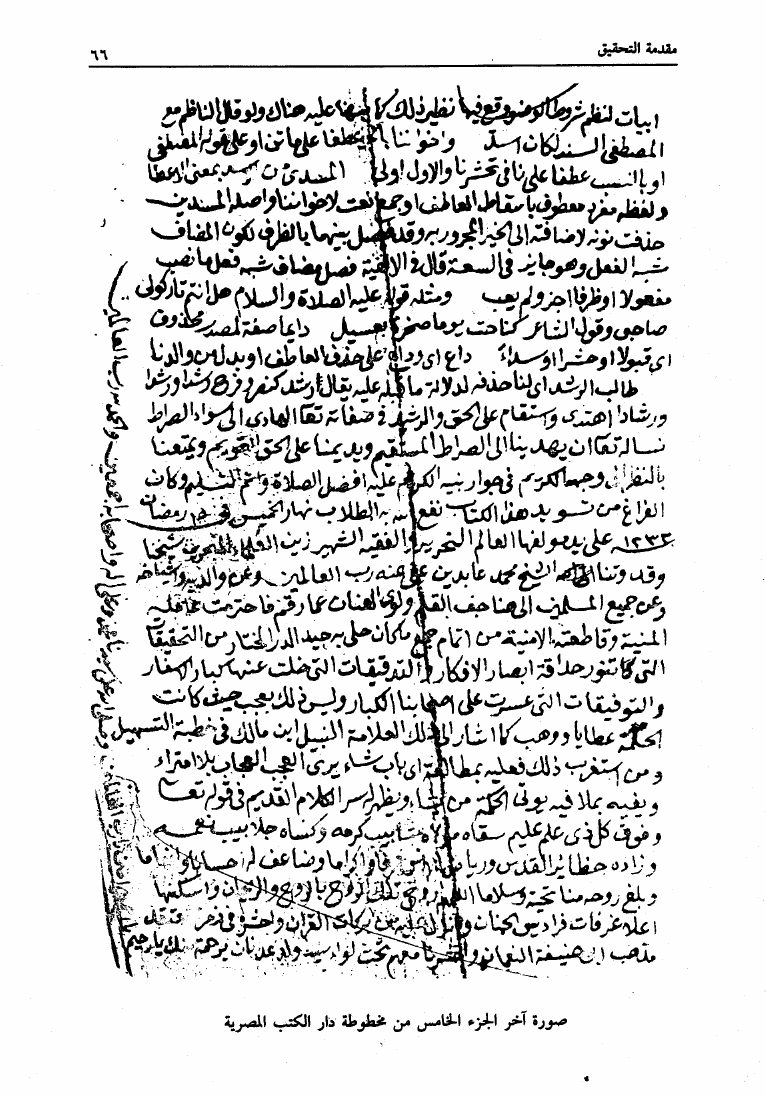 مقدمة التحقيق
٦٦
ابيات لنظم شروط الوضوء وقع فيها نظير ذلك كما عليه هناك ولو قال الناظم مع
المصطفى السند لكان اسد واخواننا عطفا على هاتن او على قوله المصطفى
او بالنصب عطفا على نا في تحشرنا والاول اولى بمعنى الاعطا
ولفظه مفرد معطوف باسقاط العاطف او جمع نعت لاخواننا واصله المسندين
حذفت نونه لاضافته الى الخير المجرور به وقد فصل بينهما بالظرف لكون المضاف
شبه الفعل وهو جايز في السعة قال في الالفية فصل مضاف شبه فعل ما نصب
مفعولا او ظرفا اجز ولم يعب ومثله قوله عليه الصلاة والسلام هل انتم تاركو لى
صاحبى وقول الشاعر كناحت يوما صخرة بعسيل دايما صفة لمصدر محذوف
اى قبولا او حشرا او سدادا داع اى ودا على حذف العاطف او بدل من والدنا
طالب الرشد اى لنا حذفه لدلالة ما قبله عليه يقال رشد كنصر وفرح رشدا ورشدا
ورشادا اهتدى واستقام على الحق والرشيد فى صفاته تعا الهادى الى سواء الصراط
نساله تعا ان يهدينا الى الصراط المستقيم ويديمنا على الحق القويم ويمتعنا
بالنظر الى وجهه الكريم في جوار نبيه الكريم عليه افضل الصلاة واتم التسليم وكان
الفراغ من تسويد هذا الكتاب نفع الله به الطلاب نهار الخميس في رمضان
على يد مولفها العالم النحرير والفقيه الشهير زين شيخنا
وقدوتنا الى الله الشيخ محمد عابدين عفى عنه رب العالمين وعن والديه واشياخه
وعن جميع المسلمين الى هنا جف القلم ولوى العنان عما رقم فاخترمت
المنية وقاطعته الامنية من اتمام جميع ما كان حلى به جيد الدر المختار من التحقيقات
التى كانت نور حداقة ابصار الافكار والتدقيقات التى ضلت عنها كبار الاسفار
والتوفيقات التى عسرت على اصحابنا الكبار وليس ذلك بعجب حيث كانت
الحكمة عطايا ووهب كما اشار الى ذلك العلامة النبيل ابن مالك في خطبة التسهيل
ومن استغرب ذلك فعليه بمطالعة اى باب شاء يرى العجب العجاب بلا امتراء
ويفيه بملا فيه يوتى الحكمة من يشاء ويظهر له سر الكلام القديم فى قوله تعا
وفوق كل ذى علم عليم سقاه مولاه شابيب كرمه وكساه جلابيب نعمه
وزاده حظاير القدس ورياض وضاعف له احسانا
وبلغ روحه منا تحية وسلاما اللهم روح تلك الروح بالروح والريحان واسكنها
اعلا غرفات فراديس الجنان القران واحشره فى زمر
مذهب ابى حنيفة النعمان واحشرنا معهم تحت لواء سيد ولد عدنان برحمتك يا رحيم
وصلى الله على سيدنا محمد وعلى اله واصحابه اجمعين والحمد لله رب العالمين
صورة آخر الجزء الخامس من مخطوطة دار الكتب المصرية